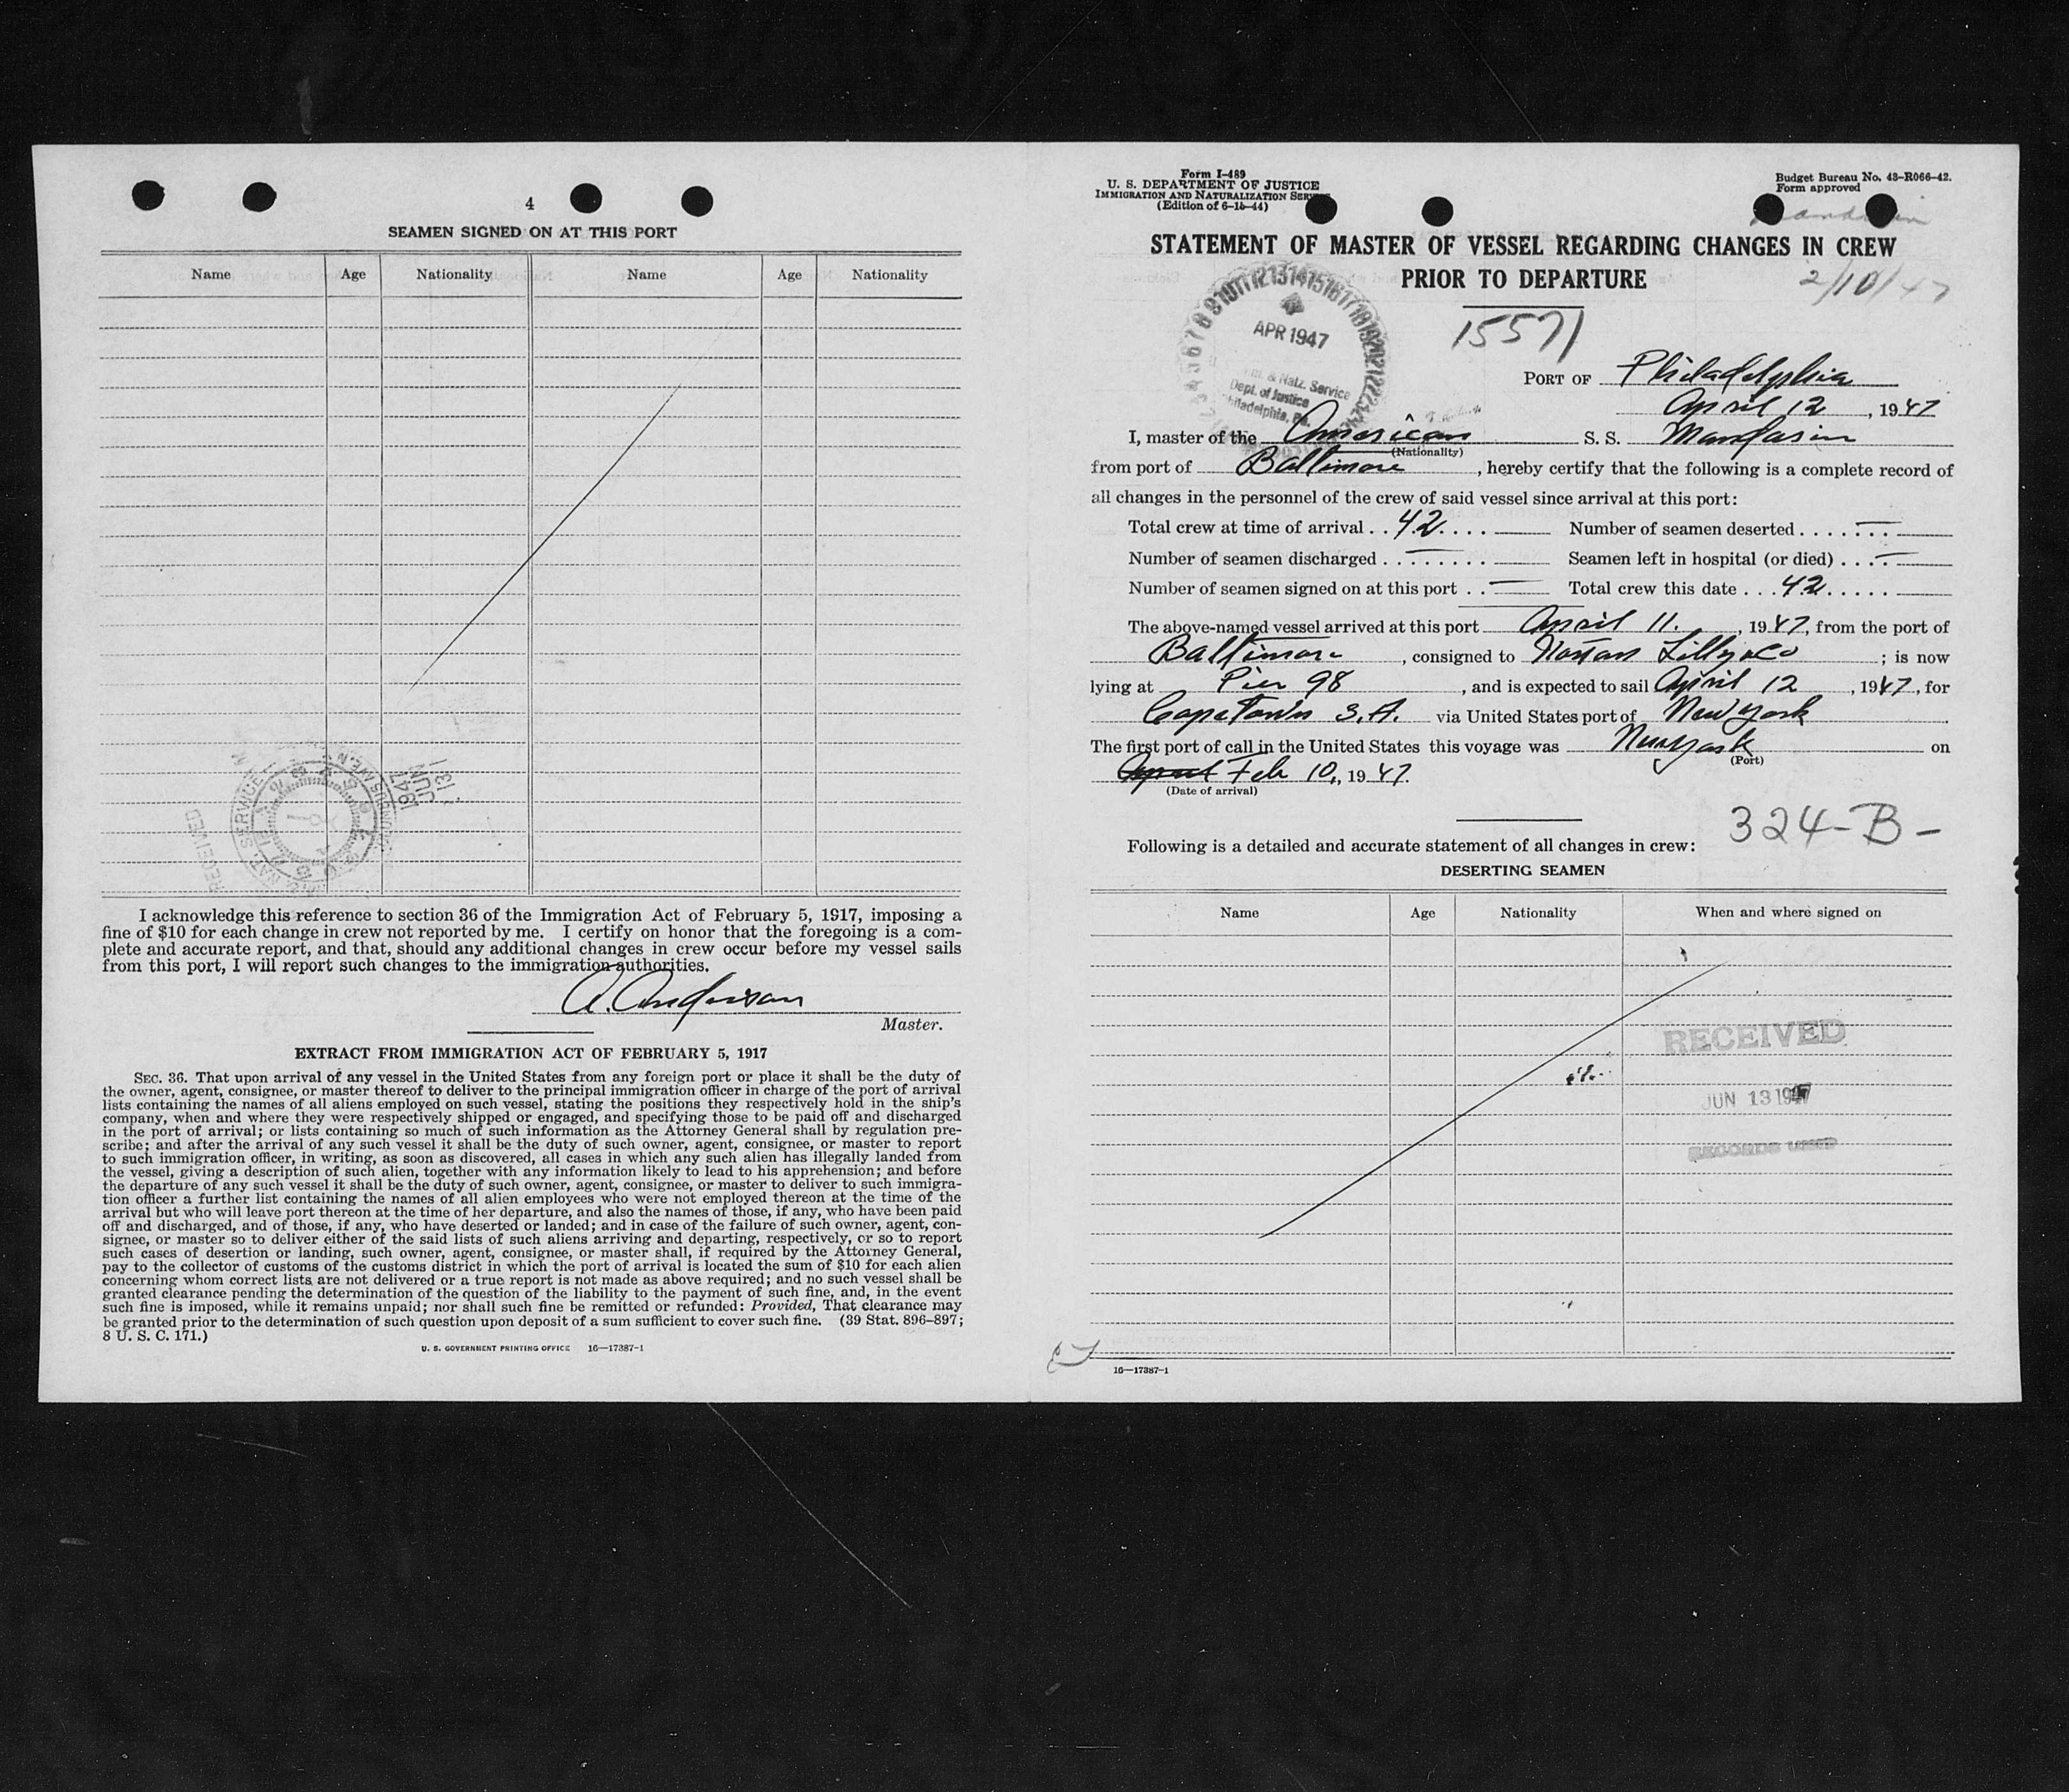 4
SEAMEN SIGNED ON AT THIS PORT
Name Age Nationality Name Age Nationality
RECEIVED
JUN 13 1947
I acknowledge this reference to section 36 of the Immigration Act of February 5, 1917, imposing a
fine of $10 for each change in crew not reported by me. I certify on honor that the foregoing is a com-
plete and accurate report, and that, should any additional changes in crew occur before my vessel sails
from this port, I will report such changes to the immigration authorities.
A. Anderson
Master.
EXTRACT FROM IMMIGRATION ACT OF FEBRUARY 5, 1917
SEC. 36. That upon arrival of any vessel in the United States from any foreign port or place it shall be the duty of
the owner, agent, consignee, or master thereof to deliver to the principal immigration officer in charge of the port of arrival
lists containing the names of all aliens employed on such vessel, stating the positions they respectively hold in the ship's
company, when and where they were respectively shipped or engaged, and specifying those to be paid off and discharged
in the port of arrival; or lists containing so much of such information as the Attorney General shall by regulation pre-
scribe; and after the arrival of any such vessel it shall be the duty of such owner, agent, consignee, or master to report
to such immigration officer, in writing, as soon as discovered, all cases in which any such alien has illegally landed from
the vessel, giving a description of such alien, together with any information likely to lead to his apprehension; and before
the departure of any such vessel it shall be the duty of such owner, agent, consignee, or master to deliver to such immigra-
tion officer a further list containing the names of all alien employees who were not employed thereon at the time of the
arrival but who will leave port thereon at the time of her departure, and also the names of those, if any, who have been paid
off and discharged, and of those, if any, who have deserted or landed; and in case of the failure of such owner, agent, con-
signee, or master so to deliver either of the said lists of such aliens arriving and departing, respectively, or so to report
such cases of desertion or landing, such owner, agent, consignee, or master shall, if required by the Attorney General,
pay to the collector of customs of the customs district in which the port of arrival is located the sum of $10 for each alien
concerning whom correct lists are not delivered or a true report is not made as above required; and no such vessel shall be
granted clearance pending the determination of the question of the liability to the payment of such fine, and, in the event
such fine is imposed, while it remains unpaid; nor shall such fine be remitted or refunded: Provided, That clearance may
be granted prior to the determination of such question upon deposit of a sum sufficient to cover such fine. (39 Stat. 896–897;
8 U. S. C. 171.)
U. S. GOVERNMENT PRINTING OFFICE 16—17387-1
Form I-489
U. S. DEPARTMENT OF JUSTICE
IMMIGRATION AND NATURALIZATION SERVICE
(Edition of 6-15-44)
Budget Bureau No. 43-R066-42.
Form approved
STATEMENT OF MASTER OF VESSEL REGARDING CHANGES IN CREW
PRIOR TO DEPARTURE
2/10/47
15571
APR 1947
Imm. & Natz. Service
Dept. of Justice
Philadelphia, Pa.
PORT OF Philadelphia
April 12, 1947
I, master of the American S. S. Mandarin
(Nationality)
from port of Baltimore, hereby certify that the following is a complete record of
all changes in the personnel of the crew of said vessel since arrival at this port:
Total crew at time of arrival . . 42 . . . . Number of seamen deserted . . . . . . . —
Number of seamen discharged . . . . . . . . — Seamen left in hospital (or died) . . . . —
Number of seamen signed on at this port . . — Total crew this date . . . 42 . . . . .
The above-named vessel arrived at this port April 11, 1947, from the port of
Baltimore, consigned to Lilly & Co ; is now
lying at Pier 98, and is expected to sail April 12, 1947, for
Capetown S.A. via United States port of New York
The first port of call in the United States this voyage was New York on
(Port)
Feb 10, 1947.
(Date of arrival)
324-B-
Following is a detailed and accurate statement of all changes in crew:
DESERTING SEAMEN
Name Age Nationality When and where signed on
RECEIVED
JUN 13 1947
RECORDS UNIT
16—17387-1